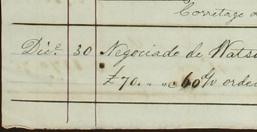 Corretage
Dic.º 30 Negociado de Wats
£70. „ „ c 60 d/v orde